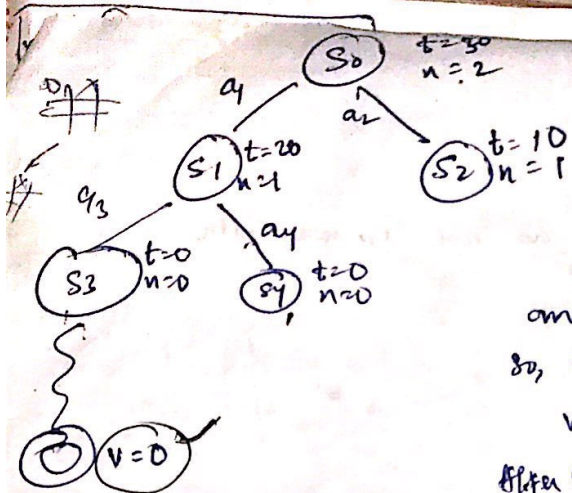 S0 t=30
n=2
a1
a2
S1 t=20
n=1
S2 t=10
n=1
a3
a4
S3 t=0
n=0
S4 t=0
n=0
so,
V=0
After